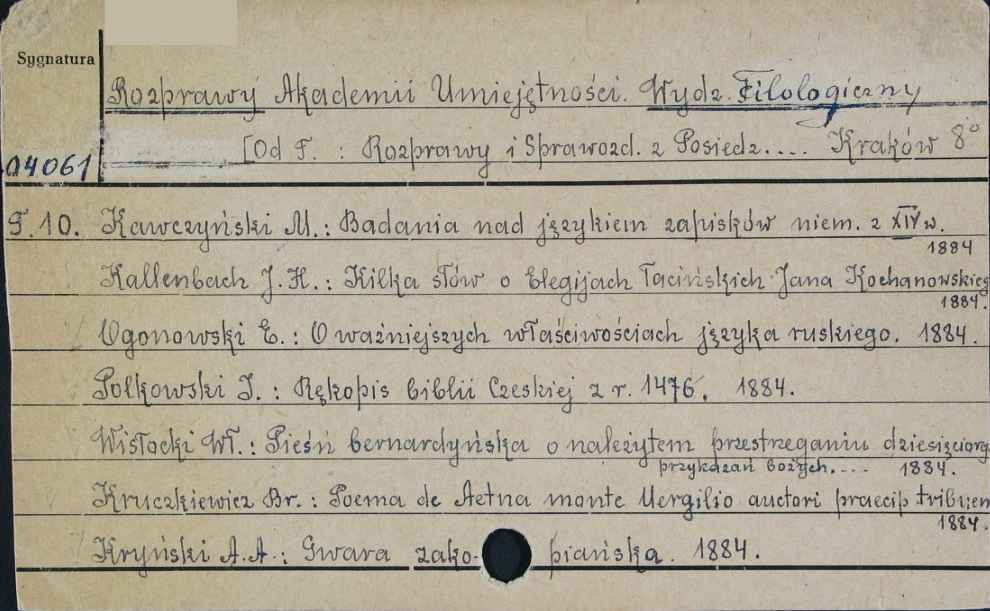 Sygnatura
Rozprawy Akademii Umiejętności. Wydz. Filologiczny
[Od T. : Rozprawy i Sprawozd. z Posiedz.... Kraków 8°
04061
T. 10. Kawczyński M.: Badania nad językiem zapisków niem. z XIV w.
1884
Kallenbach J. H.: Kilka słów o Elegijach łacińskich Jana Kochanowskieg
1884.
Ogonowski E.: O ważniejszych właściwościach języka ruskiego. 1884.
Polkowski I.: Rękopis biblii Czeskiej z r. 1476. 1884.
Wisłocki Wł.: Pieśń bernardyńska o należytem przestrzeganiu dziesięciorg
przykazań bożych.... 1884.
Kruczkiewicz Br.: Poema de Aetna monte Vergilio auctori praecip tribuen
1884.
Kryński A.A.: Gwara zako- piańska. 1884.